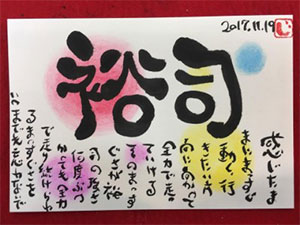 2017.11.19
裕司
感じたま
まにまっすぐ
動く、行
きたい方
に向かって
全力で走っ
ていける
そのまっす
ぐさが裕
司の強さ
何度ぶつ
かっても全力
で走り続けられ
るまっすぐさを
いつまでも忘れないで